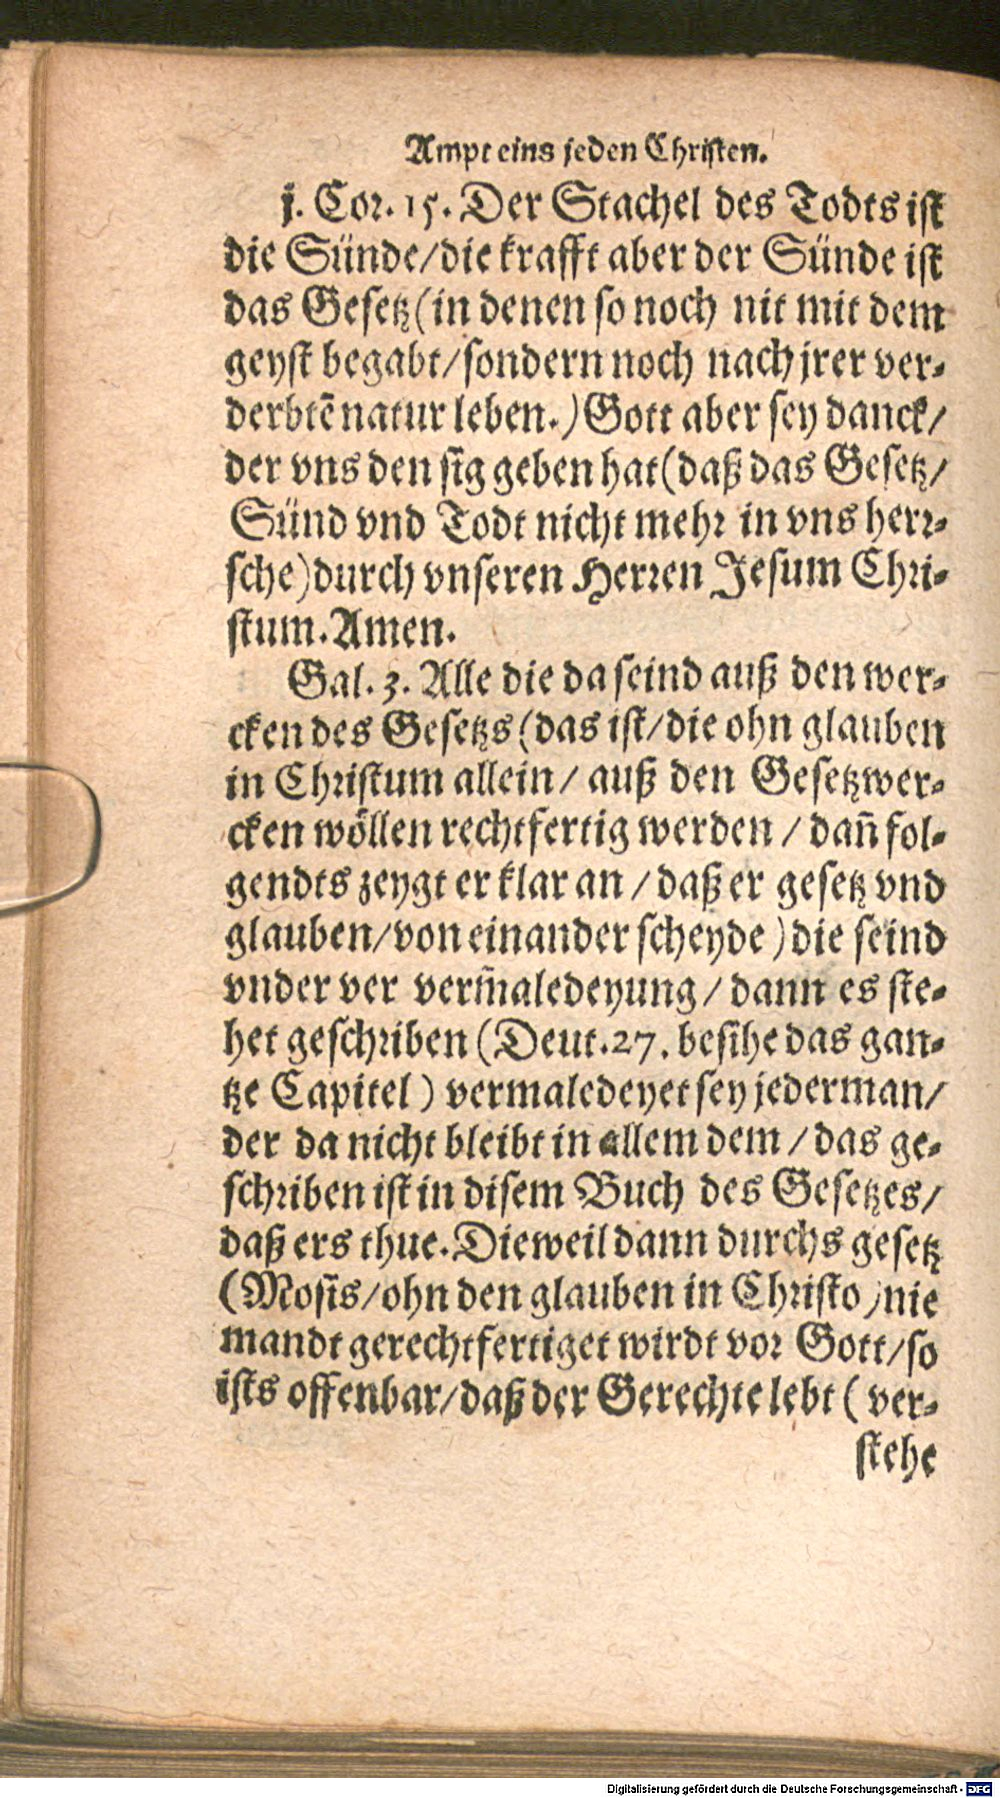 Ampt eins jeden Christen.
j. Cor. 15. Der Stachel des Todts ist
die Sünde/die krafft aber der Sünde ist
das Gesetz (in denen so noch nit mit dem
geyst begabt/sondern noch nach jrer ver-
derbtē natur leben.) Gott aber sey danck/
der vns den sig geben hat (daß das Gesetz/
Sünd vnd Todt nicht mehr in vns herr-
sche) durch vnseren Herren Jesum Chri-
stum. Amen.
Gal. 3. Alle die da seind auß den wer-
cken des Gesetzs (das ist/die ohn glauben
in Christum allein/ auß den Gesetzwer-
cken wöllen rechtfertig werden / dañ fol-
gendts zeygt er klar an / daß er gesetz vnd
glauben/von einander scheyde) die seind
vnder ver verm̃aledeyung / dann es ste-
het geschriben (Deut. 27. besihe das gan-
tze Capitel) vermaledeyet sey jederman/
der da nicht bleibt in allem dem / das ge-
schriben ist in disem Buch des Gesetzes/
daß ers thue. Dieweil dann durchs gesetz
(Mosis/ohn den glauben in Christo) nie
mandt gerechtfertiget wirdt vor Gott/so
ists offenbar/daß der Gerechte lebt (ver-
stehe
Digitalisierung gefördert durch die Deutsche Forschungsgemeinschaft - DFG